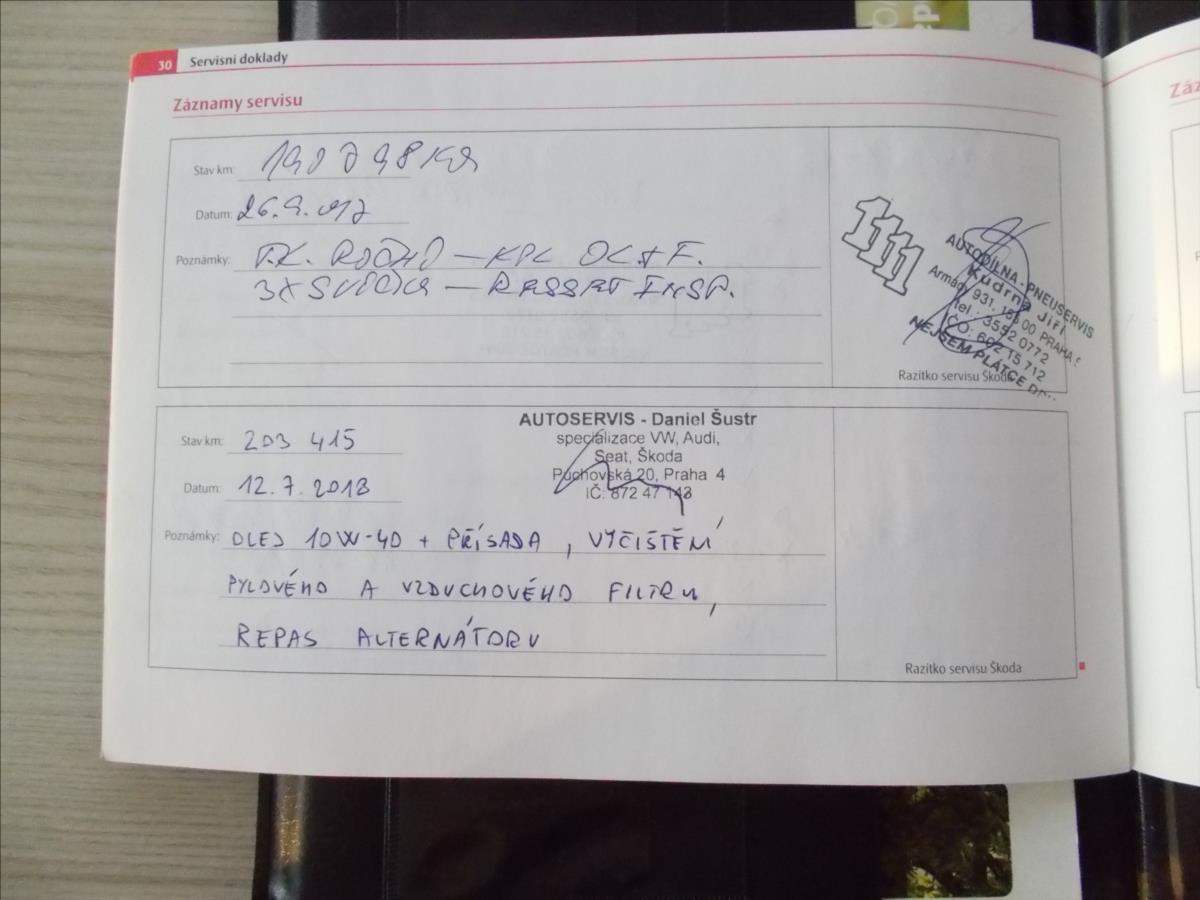 30 Servisní doklady
Záznamy servisu
Stav km: 190 798 KM
Datum: 26.9.2017
Poznámky: ROČNÍ — KPL OL + F.
3X SVÍČKA — INSP.
1111
AUTODÍLNA - PNEUSERVIS
Kudrna Jiří
Armády 931, 155 00 PRAHA 5
tel.: 3552 0772
IČO: 602 15 712
NEJSEM PLÁTCE
Razítko servisu Škoda
AUTOSERVIS - Daniel Šustr
specializace VW, Audi,
Seat, Škoda
Púchovská 20, Praha 4
IČ: 872 47 143
Stav km: 203 415
Datum: 12.7.2018
Poznámky: OLEJ 10W-40 + PŘÍSADA, VYČIŠTĚNÍ
PYLOVÉHO A VZDUCHOVÉHO FILTRU,
REPAS ALTERNÁTORU
Razítko servisu Škoda